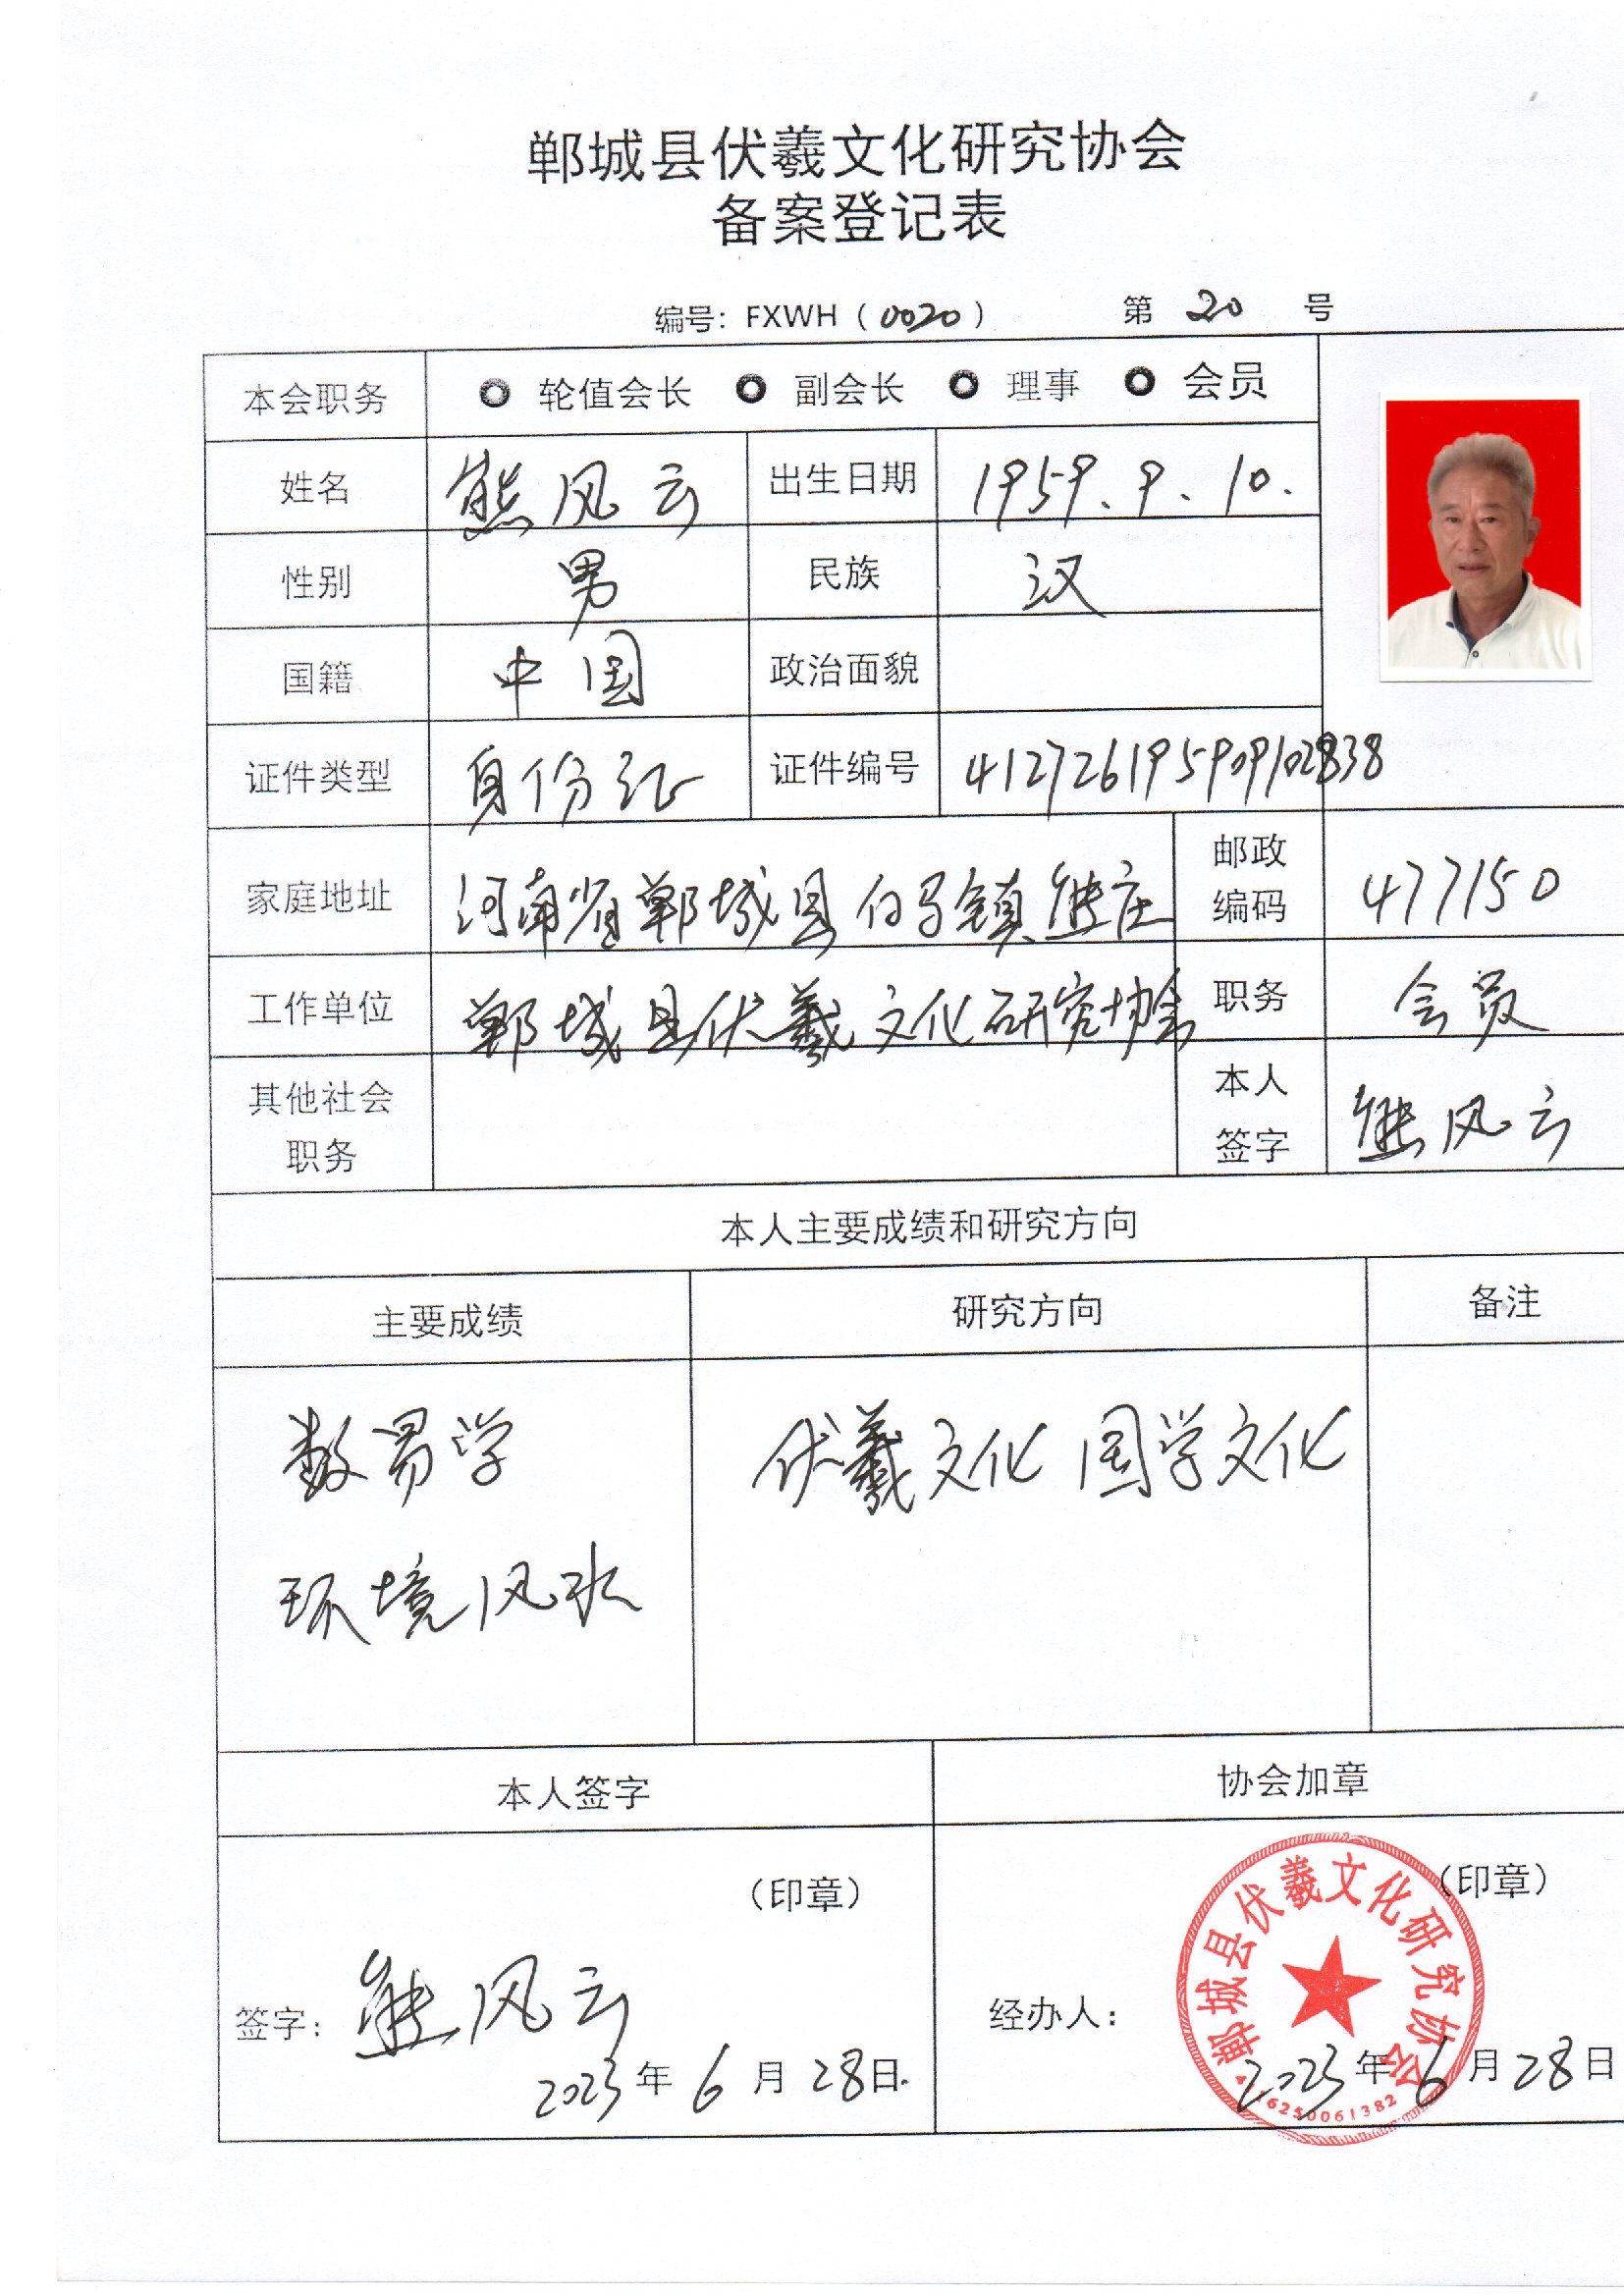 郸城县伏羲文化研究协会
备案登记表
编号：FXWH（0020） 第 20 号
本会职务 轮值会长 副会长 理事 会员
姓名 熊风云 出生日期 1959.9.10.
性别 男 民族 汉
国籍 中国 政治面貌
证件类型 身份证 证件编号 412726195909102838
家庭地址 河南省郸城县白马镇熊庄 邮政编码 477150
工作单位 郸城县伏羲文化研究协会 职务 会员
其他社会职务 本人签字 熊风云
本人主要成绩和研究方向
主要成绩 研究方向 备注
数易学 伏羲文化 国学文化
环境风水
本人签字 协会加章
（印章） （印章）
签字：熊风云 经办人：
2023年6月28日. 2023年6月28日
郸城县伏羲文化研究协会
4116250061382